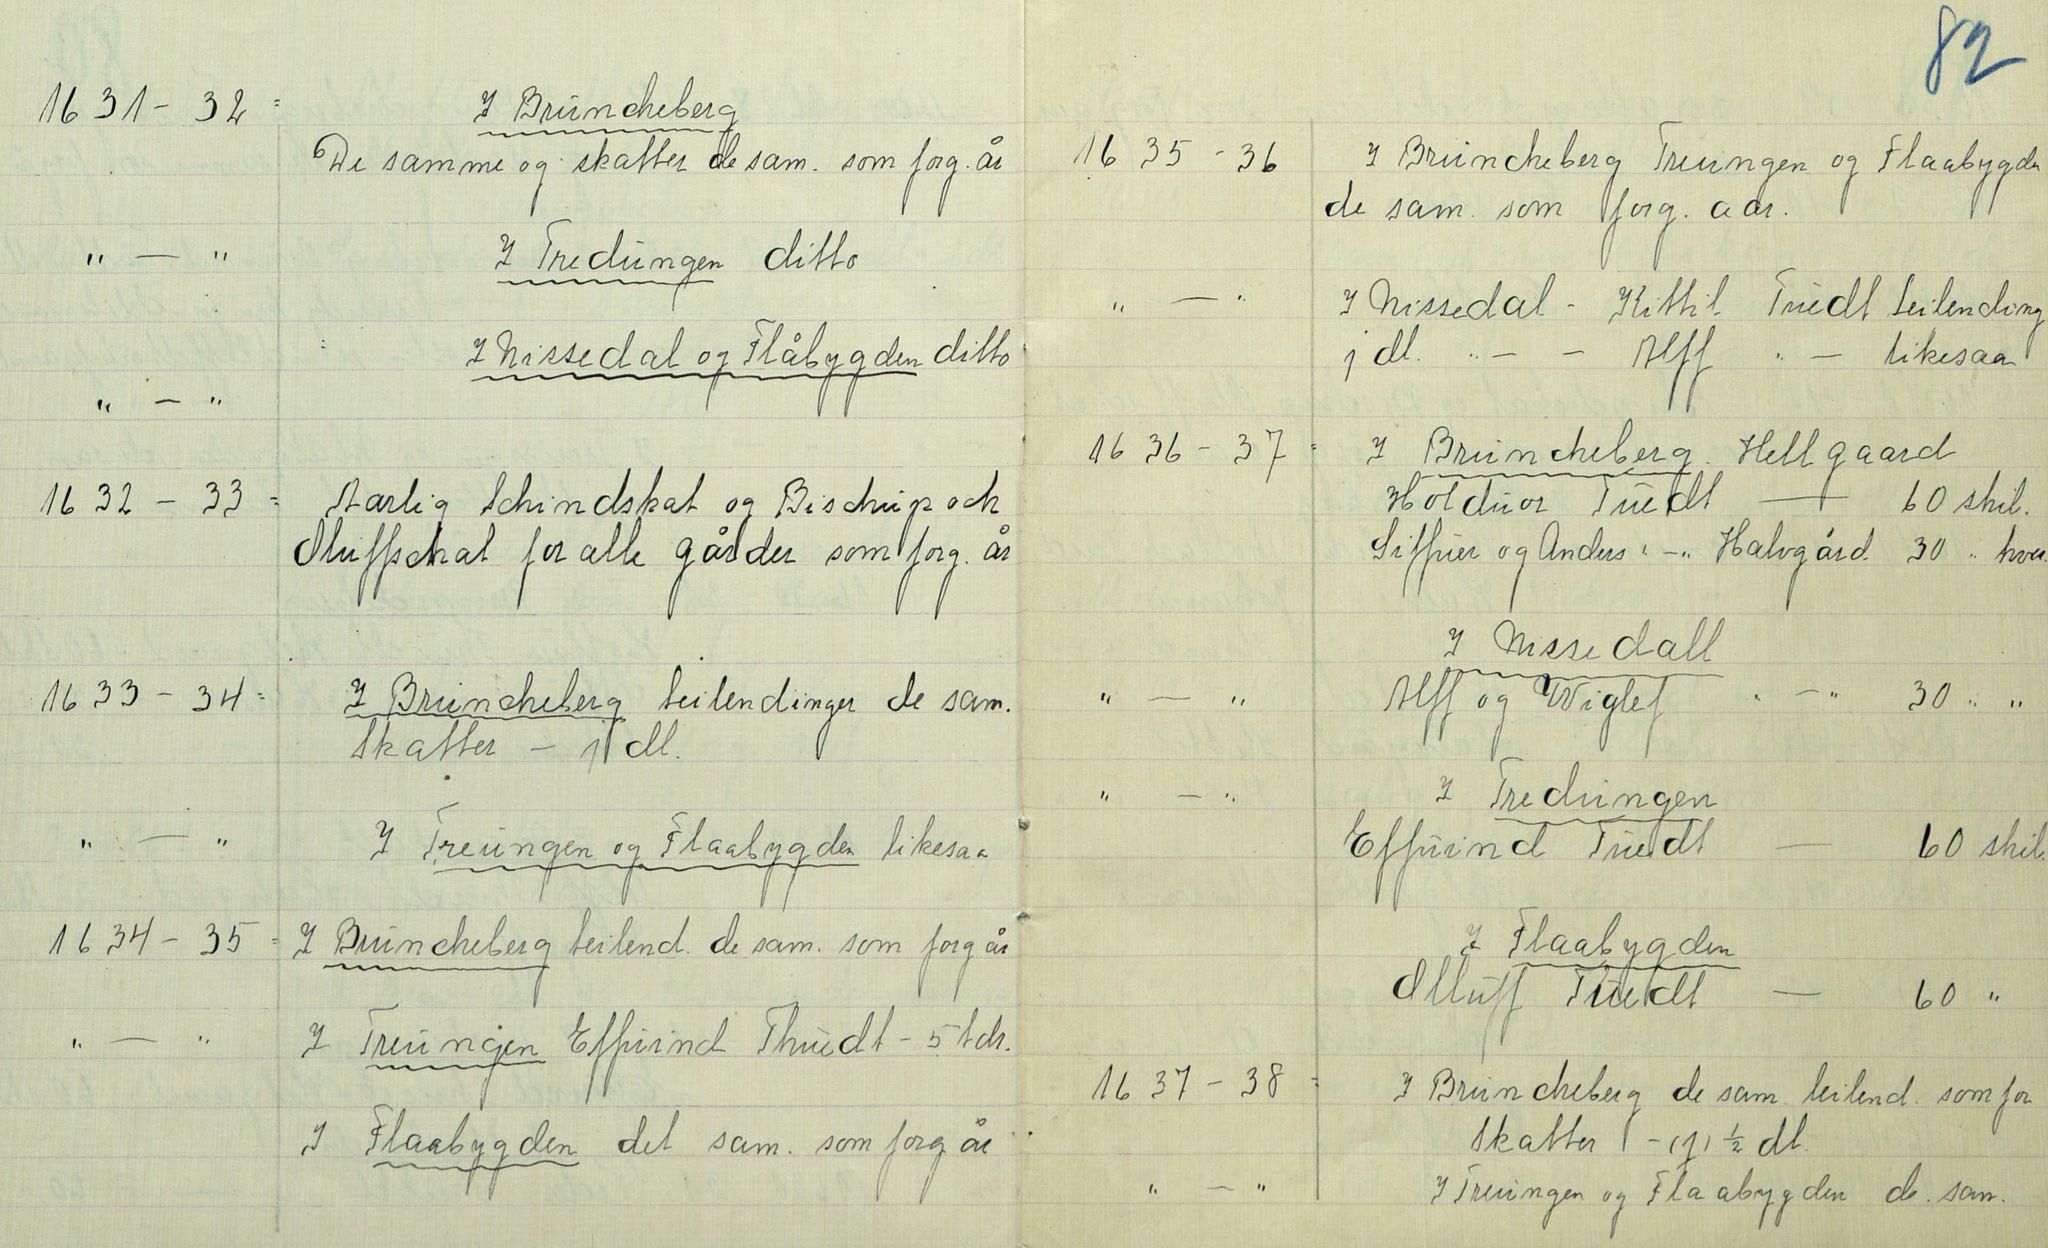 1631 - 32 = I Brüncheberg
De samme og skatter de sam. som forg. år
" — " I Tredüngen ditto
I Nissedal og Flåbygden ditto
" — "
1632 - 33 = Aarlig Schindskat og Bischup och
Olluffschat for alle gårder som forg. år
1633 - 34 = I Brüncheberg leilendinger de sam.
skatter - j dl.
" — " I Treüngen og Flaabygden likesaa
1634 - 35 = I Brüncheberg leilend. de sam. som forg år
" — " I Treüngen Effuind Thuedt - 5 tdr.
I Flaabygden det sam. som forg år
82
1635 - 36 I Brüncheberg Treüngen og Flaabygden
de sam. som forg. aar.
" — " I Nissedal - Kittil Tuedt leilending
j dl. " - - Alff " - likesaa
1636 - 37 = I Brüncheberg. Hellgaard
Holduor Tuedt — 60 skil.
Siffuer og Anders " - " Halvgård 30 " hver.
I Nissedall
" — " Alff og Wiglef " - " 30 " "
" — " I Tredüngen
Effuind Tuedt — 60 skil.
I Flaabygden
Olluff Tuedt — 60 "
1637 - 38 = I Brüncheberg de sam. leilend. som for
skatter - (j) ½ dl.
" — " I Treüngen og Flaabygden de. sam.